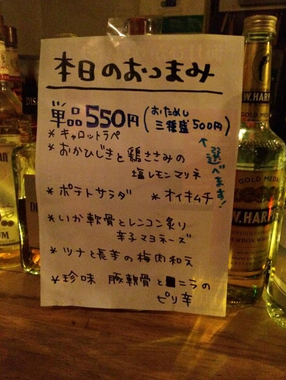 本日のおつまみ
単品550円(おためし三種盛500円)
↑選べます!
*キャロットラペ
*おかひじきと鶏ささみの
塩レモンマリネ
*ポテトサラダ *オイキムチ
*いか軟骨とレンコン炙り
辛子マヨネーズ
*ツナと長芋の梅肉和え
*珍味 豚軟骨と■ニラの
ピリ辛
W.HARP
GOLD MEDAL
W.HARP
RUM